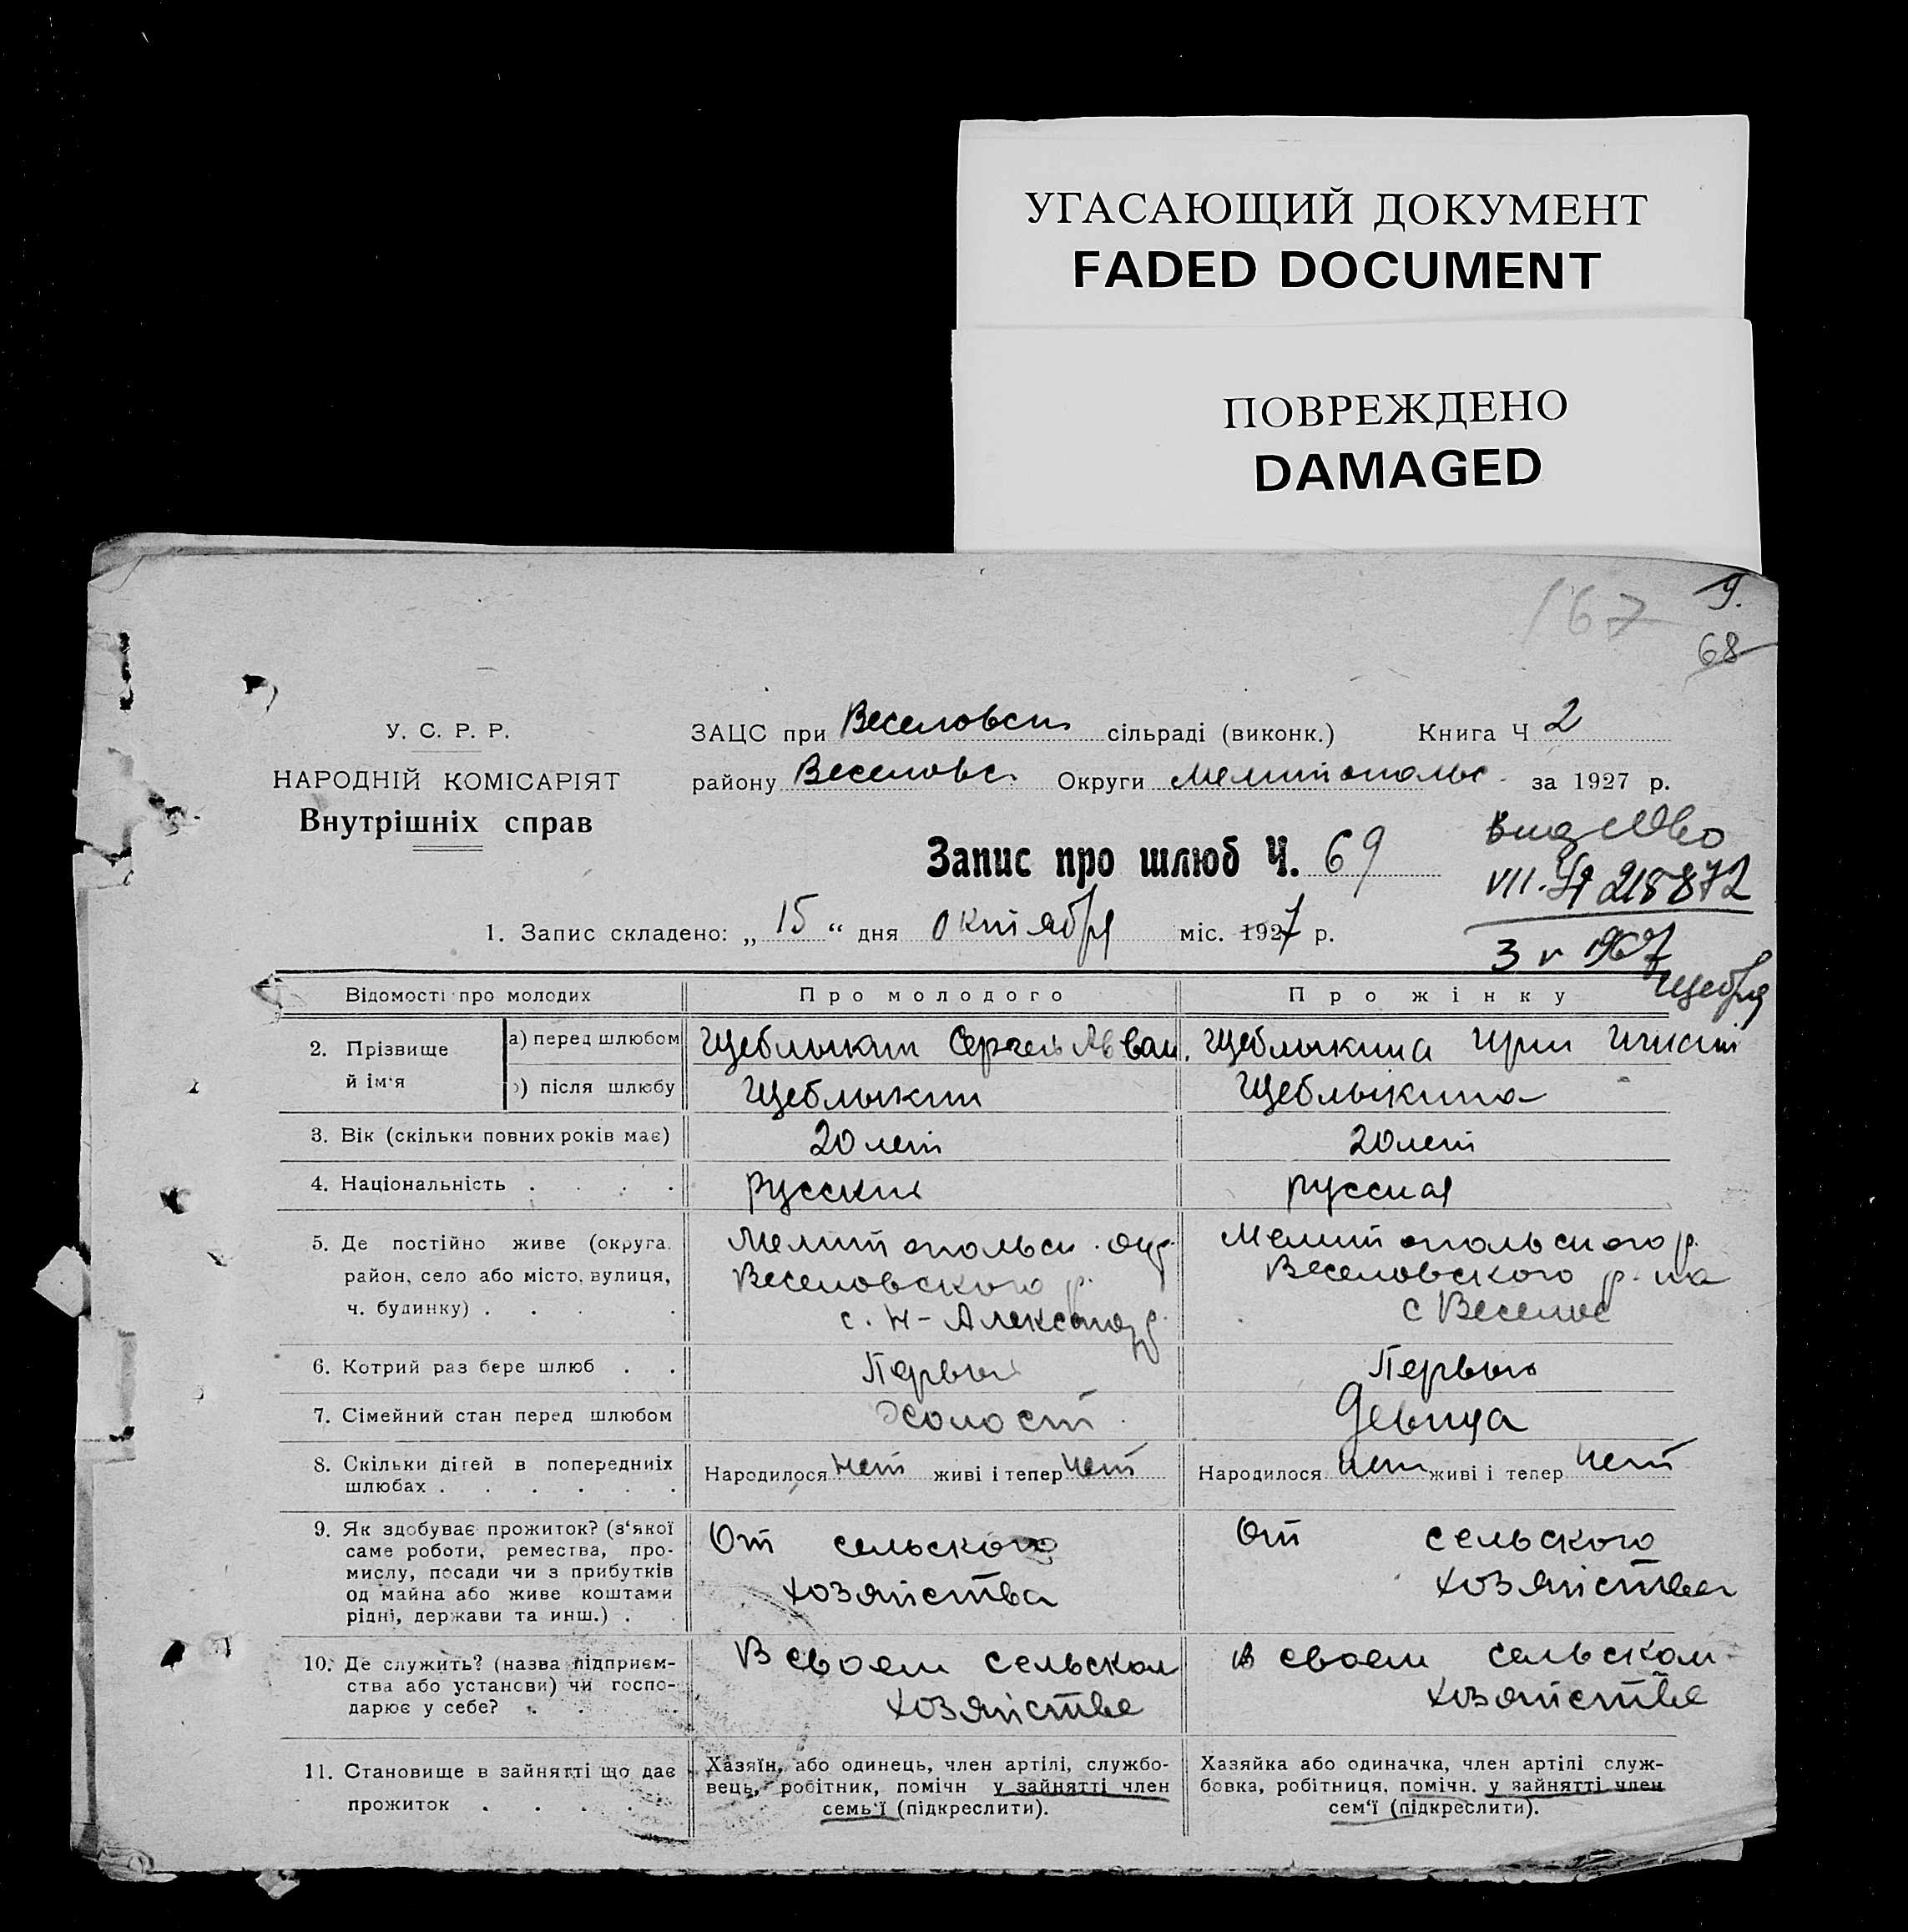 УГАСАЮЩИЙ ДОКУМЕНТ
FADED DOCUMENT
ПОВРЕЖДЕНО
DAMAGED
9.
167
68
У. С. Р. Р.
НАРОДНІЙ КОМІСАРІЯТ
Внутрішніх справ
ЗАЦС при Веселовск сільраді (виконк.) Книга Ч 2
району Веселовс. Округи Мелитопольс. за 1927 р.
Запис про шлюб Ч. 69
VII
218872
3 V 1967
1. Запис складено: „ 15 “ дня октября міс. 1927 р.
Відомості про молодих Про молодого Про жінку
2. Прізвище й ім'я
а) перед шлюбом Щеблыкин Сергей Щеблыкина Ирин
б) після шлюбу Щеблыкин Щеблыкина
3. Вік (скільки повних років має) 20 лет 20 лет
4. Національність . . . . русский русская
5. Де постійно живе (округа, район, село або місто, вулиця, ч. будинку) . . . .
Мелитопольск. окр.
Веселовского р.
с. Н-Александр.
Мелитопольского
Веселовского р-на
с Веселое
6. Котрий раз бере шлюб . . Первый Первый
7. Сімейний стан перед шлюбом Холост Девица
8. Скільки дітей в попередніїх шлюбах . . . . . .
Народилося нет живі і тепер нет Народилося нет живі і тепер нет
9. Як здобуває прожиток? (з'якої
саме роботи, ремества, про-
мислу, посади чи з прибутків
од майна або живе коштами
рідні, держави та инш.) . .
От сельского
хозяйства
От сельского
хозяйства
10. Де служить? (назва підприєм-
ства або установи) чи госпо-
дарює у себе? . . .
В своем сельском
хозяйстве
В своем сельском
хозяйстве
11. Становище в зайнятті що дає
прожиток . . . . .
Хазяїн, або одинець, член артілі, службо-
вець, робітник, помічн у зайнятті член
семь'ї (підкреслити).
Хазяйка або одиначка, член артілі служ-
бовка, робітниця, помічн. у зайнятті член
сем'ї (підкреслити).